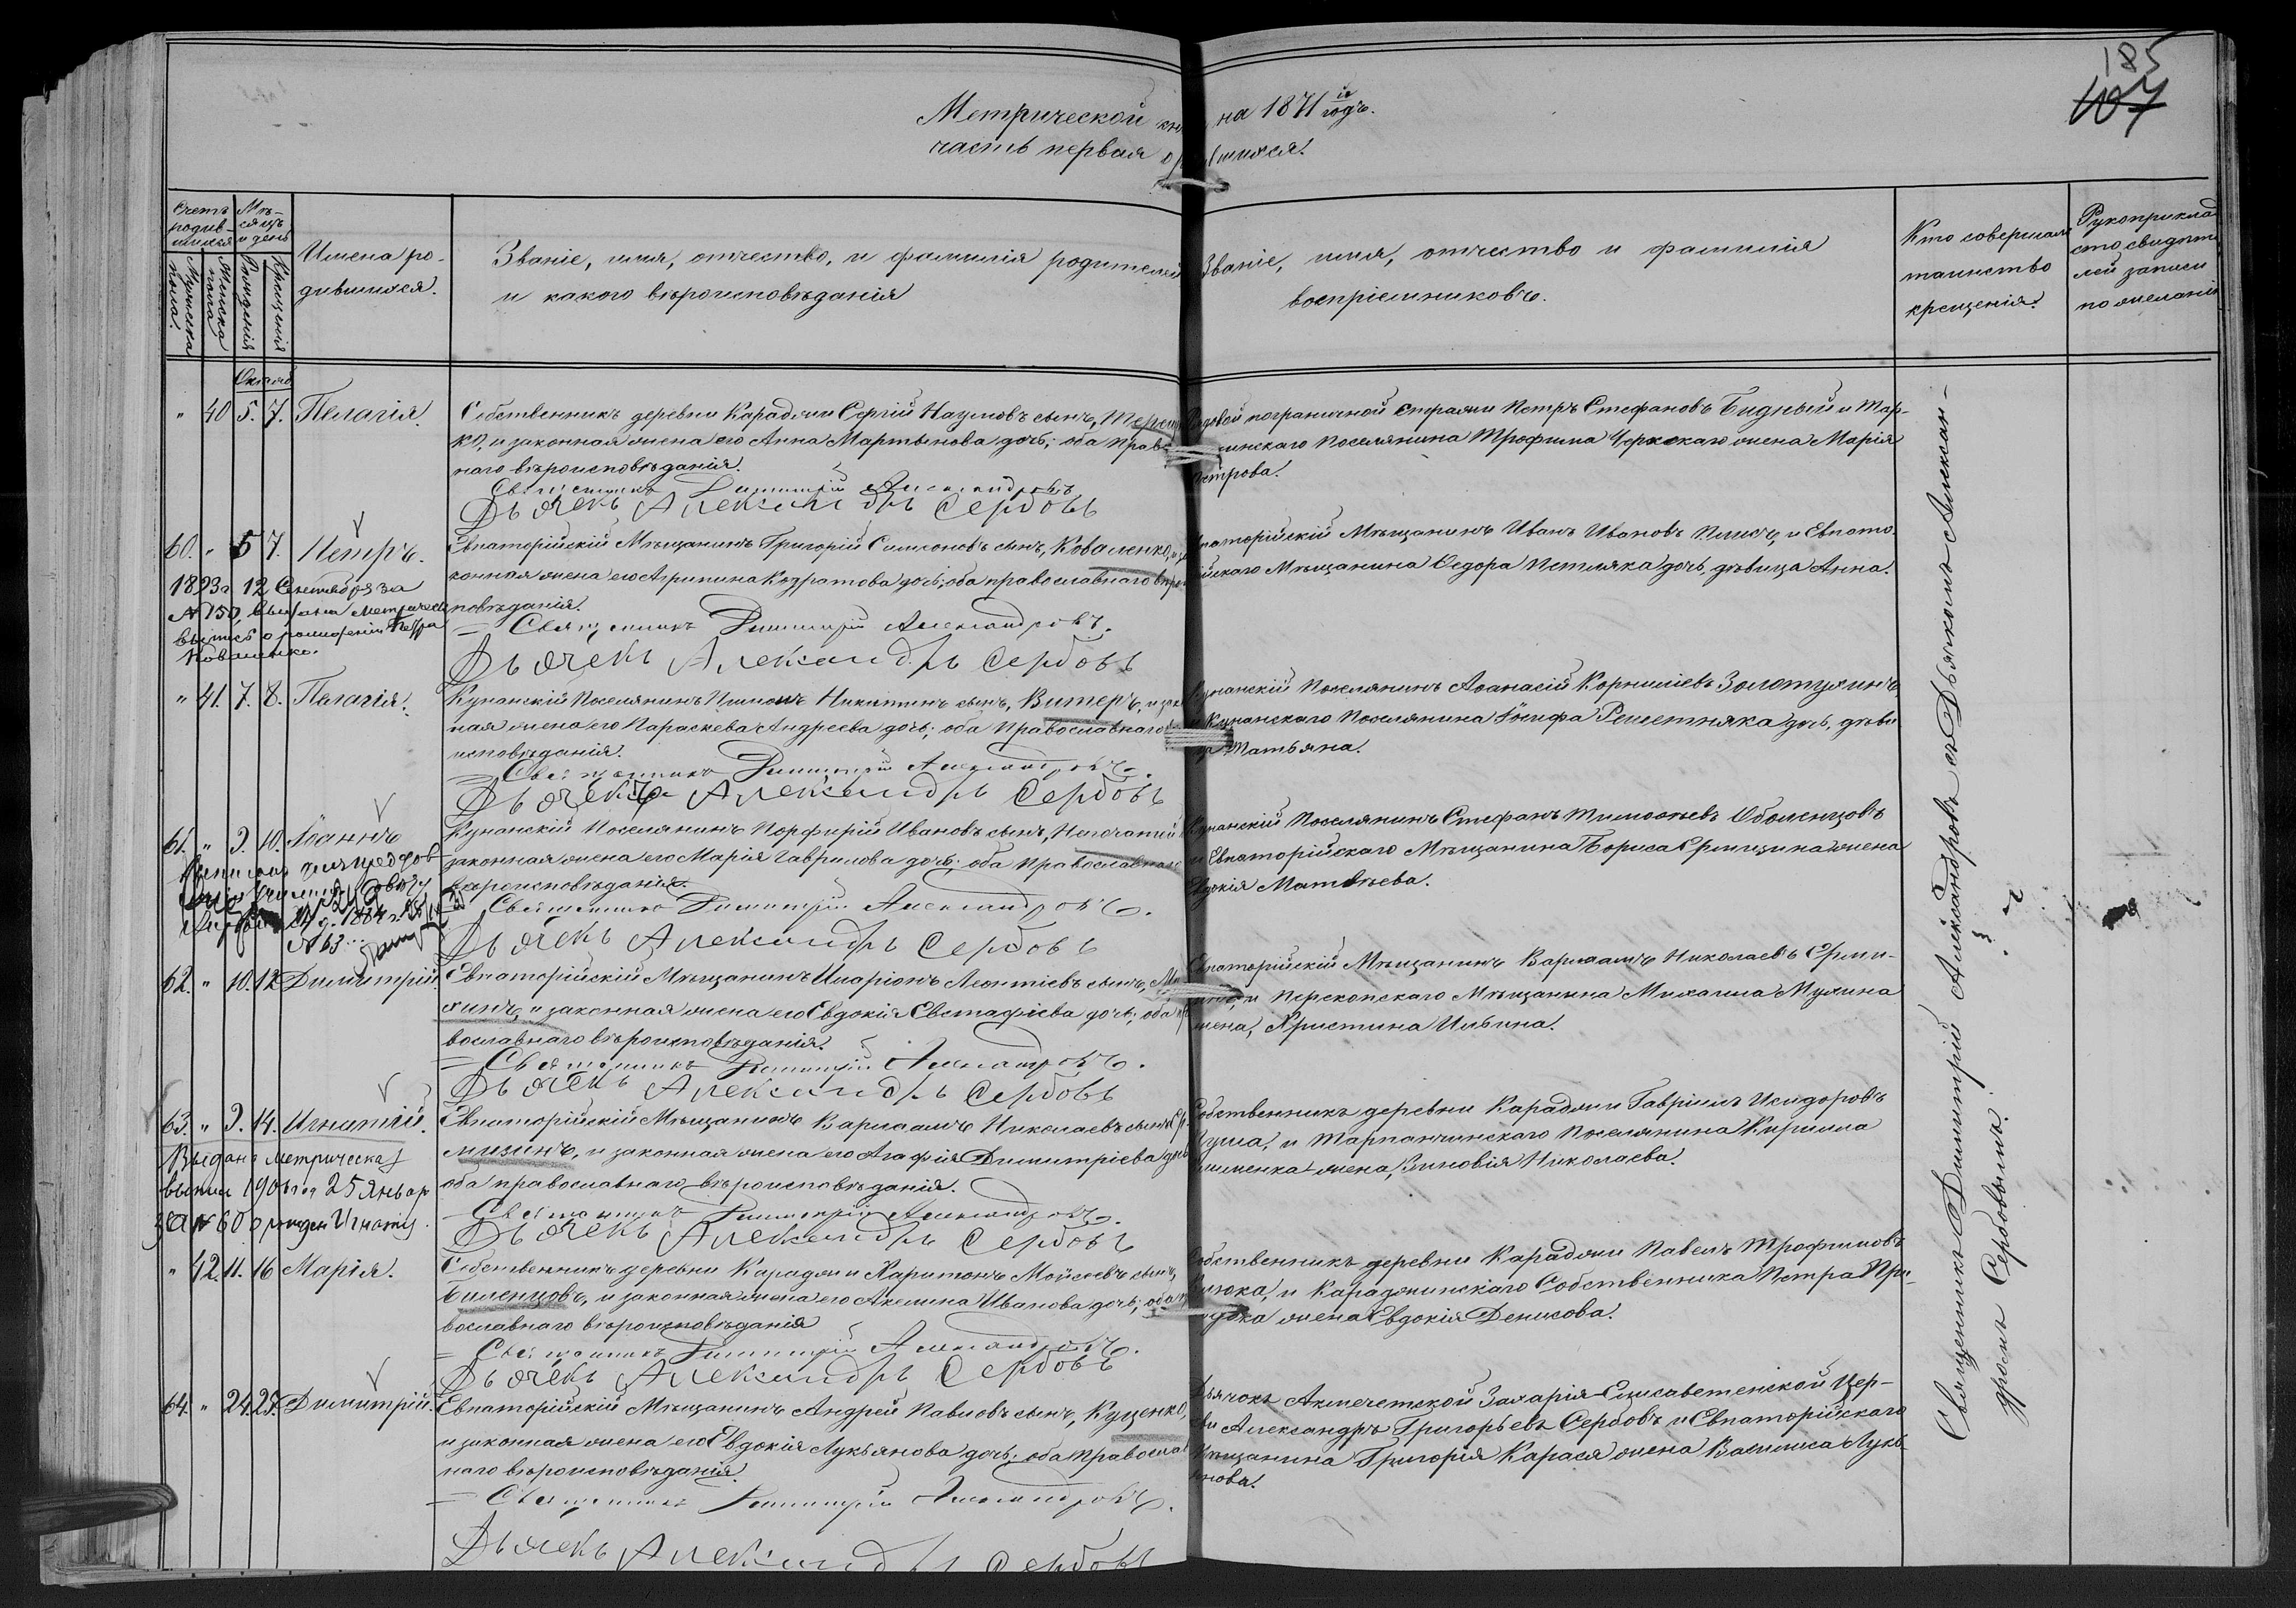 185
107
Метрической на 1871й годъ.
часть первая о шихся.
Счетъ родив-шихся
Мѣ-сяцъ и день
Мужеска пола.
Женска пола
Рожденія
Крещенія
Имена ро-
дившихся.
Званіе, имя, отчество, и фамилія родителей
и какого вѣроисповѣданія
Званіе, имя, отчество и фамилія
воспріемниковъ.
Кто совершалъ
таинство
крещенія.
Рукоприклад
ство свидѣте
лей записи
по желанію
" 40 5. 7. Пелагія.
Собственникъ деревни Караджи Сергій Наумовъ сынъ,
ко, и законная жена его Анна Мартынова дочь; оба право
наго вѣроисповѣданія.
Священникъ Димитрій Александровъ
Дьячекъ Александръ Сербовъ
Рядовой пограничной стражи Петръ Стефановъ Бидный и Тар-
чинскаго Поселянина Трофима Черкскаго жена Марія
Петрова.
60. " 5 7. Петръ.
Евпаторійскій Мѣщанинъ Григорій Симеоновъ сынъ, Коваленко, и за
конная жена его Агрипина Кодратова дочь; оба православнаго вѣрои
повѣданія.
Священникъ Димитрій Александровъ.
Дьячекъ Александръ Сербовъ
Евпаторійскій Мѣщанинъ Иванъ Ивановъ и Евпато-
рійскаго Мѣщанина Федора Петляка дочь, дѣвица Анна.
1893г 12 Сентября за
№ 150, выдана метрическ
выпись о рожденіи Петра
Коваленко.
" 41. 7. 8. Пелагія.
Кунанскій Поселянинъ Никитинъ сынъ, Витеръ, и зак
ная жена его Параскева Андреева дочь; оба Православнаго
исповѣданія.
Священникъ Димитрій Александровъ.
Дьячекъ Александръ Сербовъ
Кунанскій Поселянинъ Аѳанасій Корниліевъ Золотухинъ
и Кунанскаго Поселянина Іосифа Решетняка дочь, дѣви
ца Татьяна.
61. " 9. 10. Іоаннъ
Кунанскій Поселянинъ Порфирій Ивановъ сынъ,
законная жена его Марія Гаврилова дочь; оба Православнаго
вѣроисповѣданія.
Священникъ Димитрій Александровъ.
Дьячекъ Александръ Сербовъ
Кунанскій Поселянинъ Стефанъ Тимоѳеевъ Оболенцовъ
и Евпаторійскаго Мѣщанина Бориса Ермизина жена
Евдокія Матвѣева.
1884 г.
№ 63
62. " 10. 12 Димитрій.
Евпаторійскій Мѣщанинъ Иларіонъ Леонтіевъ сынъ, Му
хинъ, и законная жена его Евдокія Евстафіева дочь; оба пра
вославнаго вѣроисповѣданія.
Священникъ Димитрій Александровъ.
Дьячекъ Александръ Сербовъ
Евпаторійскій Мѣщанинъ Варлаамъ Николаевъ Ерми-
зинъ, и Перекопскаго Мѣщанина Михаила Мухина
жена, Христина Ильина.
63. " 9. 14. Игнатій.
Евпаторійскій Мѣщанинъ Варлаамъ Николаевъ сынъ Ер-
мизинъ, и законная жена его Агафія Димитріева дочь
оба православнаго вѣроисповѣданія.
Священникъ Димитрій Александровъ.
Дьячекъ Александръ Сербовъ
Собственникъ деревни Караджи Гавріилъ Исидоровъ
и Тарпанчинскаго Поселянина Кирилла
жена, Зиновія Николаева.
Выдана метрическая
выпись 25 Январ
за № 60 о рожден Игнатія.
" 42. 11. 16 Марія.
Собственникъ деревни Караджи Харитонъ Мойсеевъ сынъ,
Биленцовъ, и законная жена его Акелина Иванова дочь; оба пра
вославнаго вѣроисповѣданія
Священникъ Димитрій Александровъ.
Дьячекъ Александръ Сербовъ
Собственникъ деревни Караджи Павелъ Трофимовъ
и Караджинскаго Собственника Петра При-
жена Евдокія Денисова.
64. " 24. 27. Димитрій.
Евпаторійскій Мѣщанинъ Андрей Павловъ сынъ, Куценко,
и законная жена его Евдокія Лукьянова дочь; оба правосла
наго вѣроисповѣданія.
Священникъ Димитрій Александровъ.
Дьячекъ Александръ Сербовъ
Дьячокъ Акмечетской Захарія-Елисаветенской Цер-
кви Александръ Григорьевъ Сербовъ и Евпаторійскаго
Мѣщанина Григорія Карася жена Василиса Лукь-
янова.
Священникъ Димитрій Александровъ съ Дьячкомъ Алексан-
дромъ Сербовымъ.